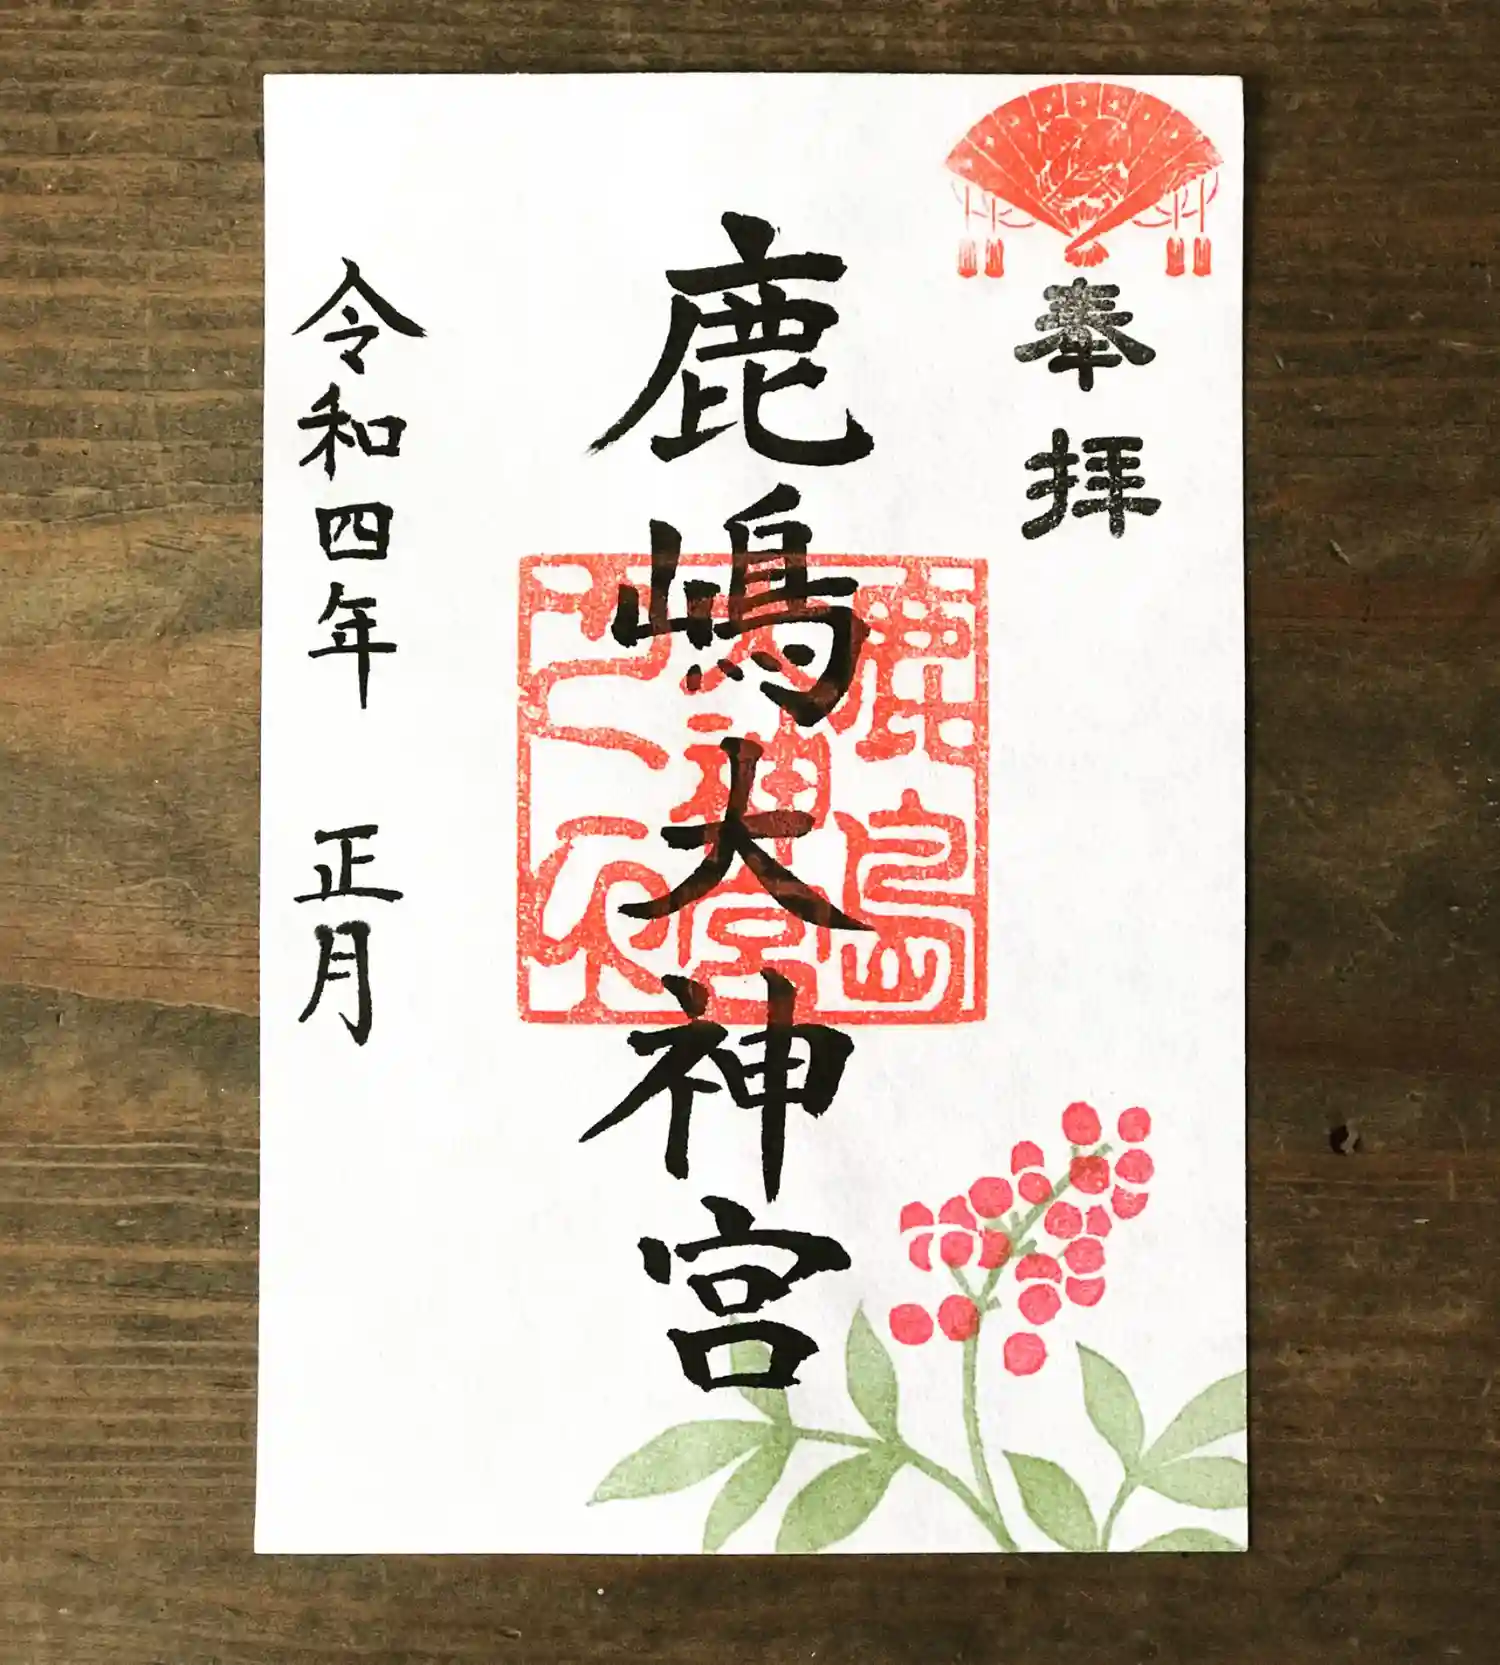 奉拝
鹿嶋大神宮
鹿島
神宮
令和四年 正月